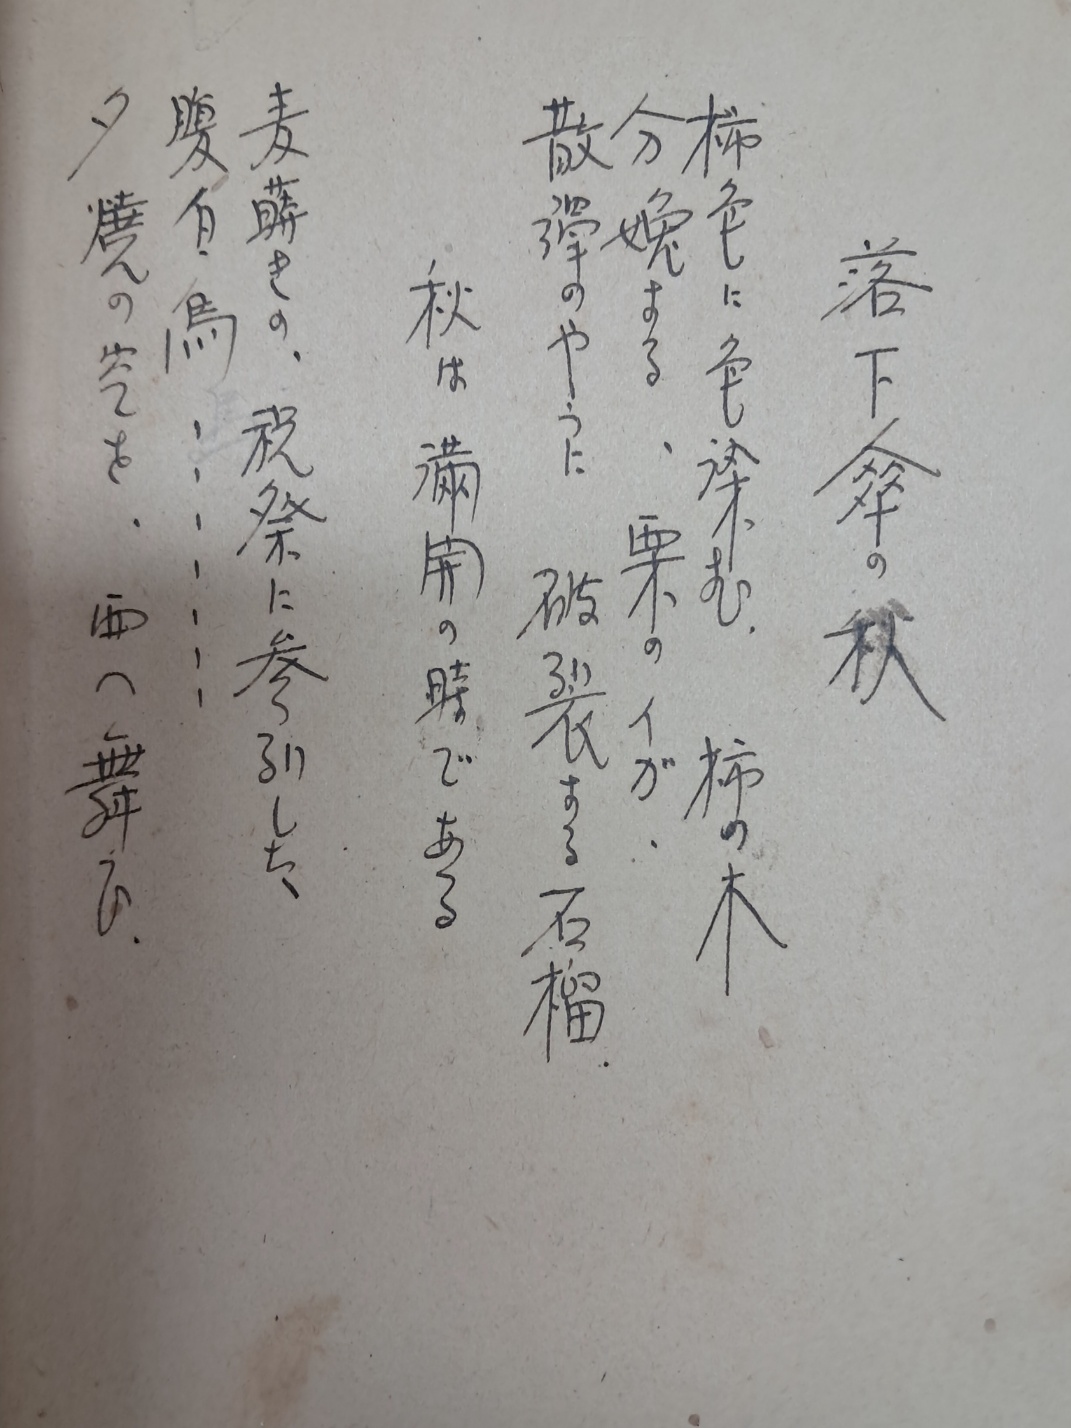 落下傘の秋
柿色に色染む、柿の木
分娩する、栗のイが、
散彈のやうに 破裂する石榴.
秋は満開の時である
麦蒔きの、祝祭に参列した、
腹白馬……
夕焼の空を、西へ舞ひ.